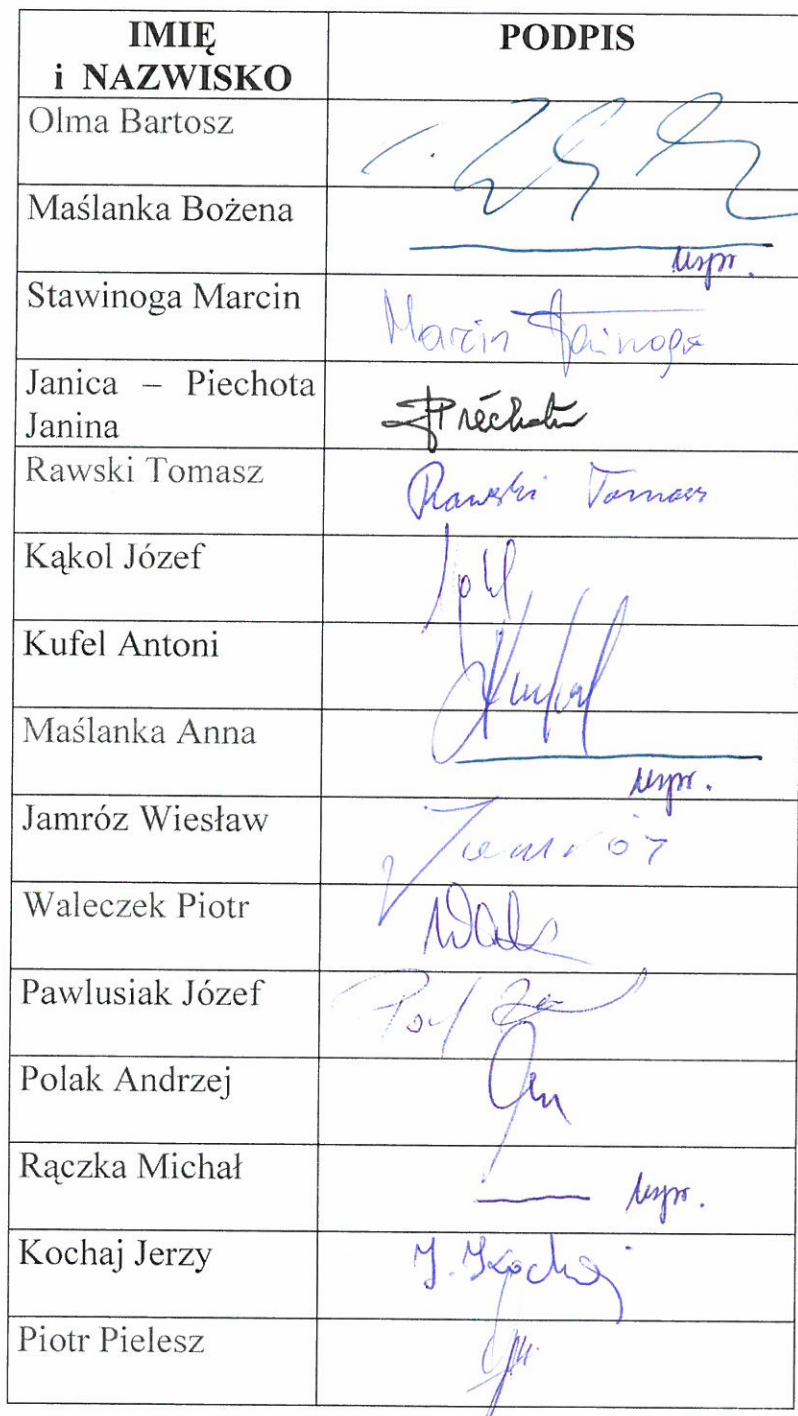 IMIĘ
i NAZWISKO
PODPIS
Olma Bartosz
Maślanka Bożena
uspr.
Stawinoga Marcin
Marcin Stawinoga
Janica – Piechota
Janina
Piechota
Rawski Tomasz
Rawski Tomasz
Kąkol Józef
Kufel Antoni
Kufel
Maślanka Anna
uspr.
Jamróz Wiesław
Jamróz
Waleczek Piotr
Pawlusiak Józef
Polak Andrzej
Rączka Michał
uspr.
Kochaj Jerzy
J. Kochaj
Piotr Pielesz